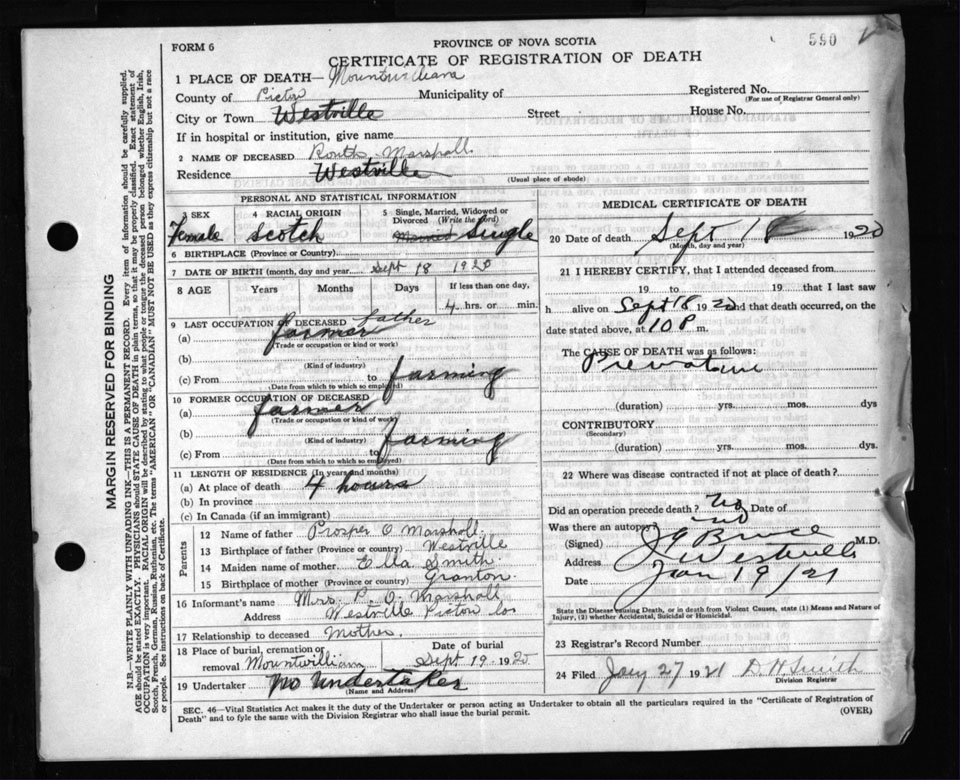 590
FORM 6
PROVINCE OF NOVA SCOTIA
CERTIFICATE OF REGISTRATION OF DEATH
1 PLACE OF DEATH—
County of Pictou Municipality of Registered No.
(For use of Registrar General only)
City or Town Westville Street House No.
If in hospital or institution, give name
2 NAME OF DECEASED Routh Marshall
Residence Westville
(Usual place of abode)
PERSONAL AND STATISTICAL INFORMATION
3 SEX
Female
4 RACIAL ORIGIN
Scotch
5 Single, Married, Widowed or
Divorced (Write the word)
Single
6 BIRTHPLACE (Province or Country)
7 DATE OF BIRTH (month, day and year Sept 18 1920
8 AGE Years Months Days If less than one day,
4 hrs. or min.
9 LAST OCCUPATION OF DECEASED father
(a) farmer
(Trade or occupation or kind or work)
(b)
(Kind of industry)
(c) From to farming
(Date from which to which so employed)
10 FORMER OCCUPATION OF DECEASED
(a) farmer
(Trade or occupation or kind of work)
(b)
(Kind of industry)
(c) From to farming
(Date from which to which so employed)
11 LENGTH OF RESIDENCE (In years and months)
(a) At place of death 4 hours
(b) In province
(c) In Canada (if an immigrant)
Parents
12 Name of father Prosper O Marshall
13 Birthplace of father (Province or country) Westville
14 Maiden name of mother Ella Smith
15 Birthplace of mother (Province or country) Granton
16 Informant's name Mrs. P. O. Marshall
Address Westville Pictou Co
17 Relationship to deceased Mother.
18 Place of burial, cremation or
removal Mountwilliam
Date of burial
Sept 19 1920
19 Undertaker No Undertaker
(Name and Address)
MEDICAL CERTIFICATE OF DEATH
20 Date of death Sept 18 1920
(Month, day and year)
21 I HEREBY CERTIFY, that I attended deceased from
19 to 19 that I last saw
h alive on Sept 18 1920 and that death occurred, on the
date stated above, at 10 P m.
The CAUSE OF DEATH was as follows:
Premature
(duration) yrs. mos. dys
CONTRIBUTORY
(Secondary)
(duration) yrs. mos. ds.
22 Where was disease contracted if not at place of death?
Did an operation precede death? no Date of
Was there an autopsy no
(Signed) J G Bruce M.D.
Address Westville
Date Jan 19/21
State the Disease causing Death, or in death from Violent Causes, state (1) Means and Nature of
Injury, (2) whether Accidental, Suicidal or Homicidal.
23 Registrar's Record Number
24 Filed Jany 27 1921 D. H. Smith
Division Registrar
SEC. 46—Vital Statistics Act makes it the duty of the Undertaker or person acting as Undertaker to obtain all the particulars required in the "Certificate of Registration of
Death" and to fyle the same with the Division Registrar who shall issue the burial permit. (OVER)
MARGIN RESERVED FOR BINDING
N.B.—WRITE PLAINLY WITH UNFADING INK—THIS IS A PERMANENT RECORD. Every item of information should be carefully supplied.
AGE should be stated EXACTLY. PHYSICIANS should STATE CAUSE OF DEATH in plain terms, so that it may be properly classified. Exact statement of
OCCUPATION is very important. RACIAL ORIGIN will be described by stating to what people or tongue the deceased person belonged whether English, Irish,
Scotch, French, German, Russian, Ruthenian, etc. The terms "AMERICAN" OR "CANADIAN" MUST NOT BE USED as they express citizenship but not a race
or people. See instructions on back of Certificate.